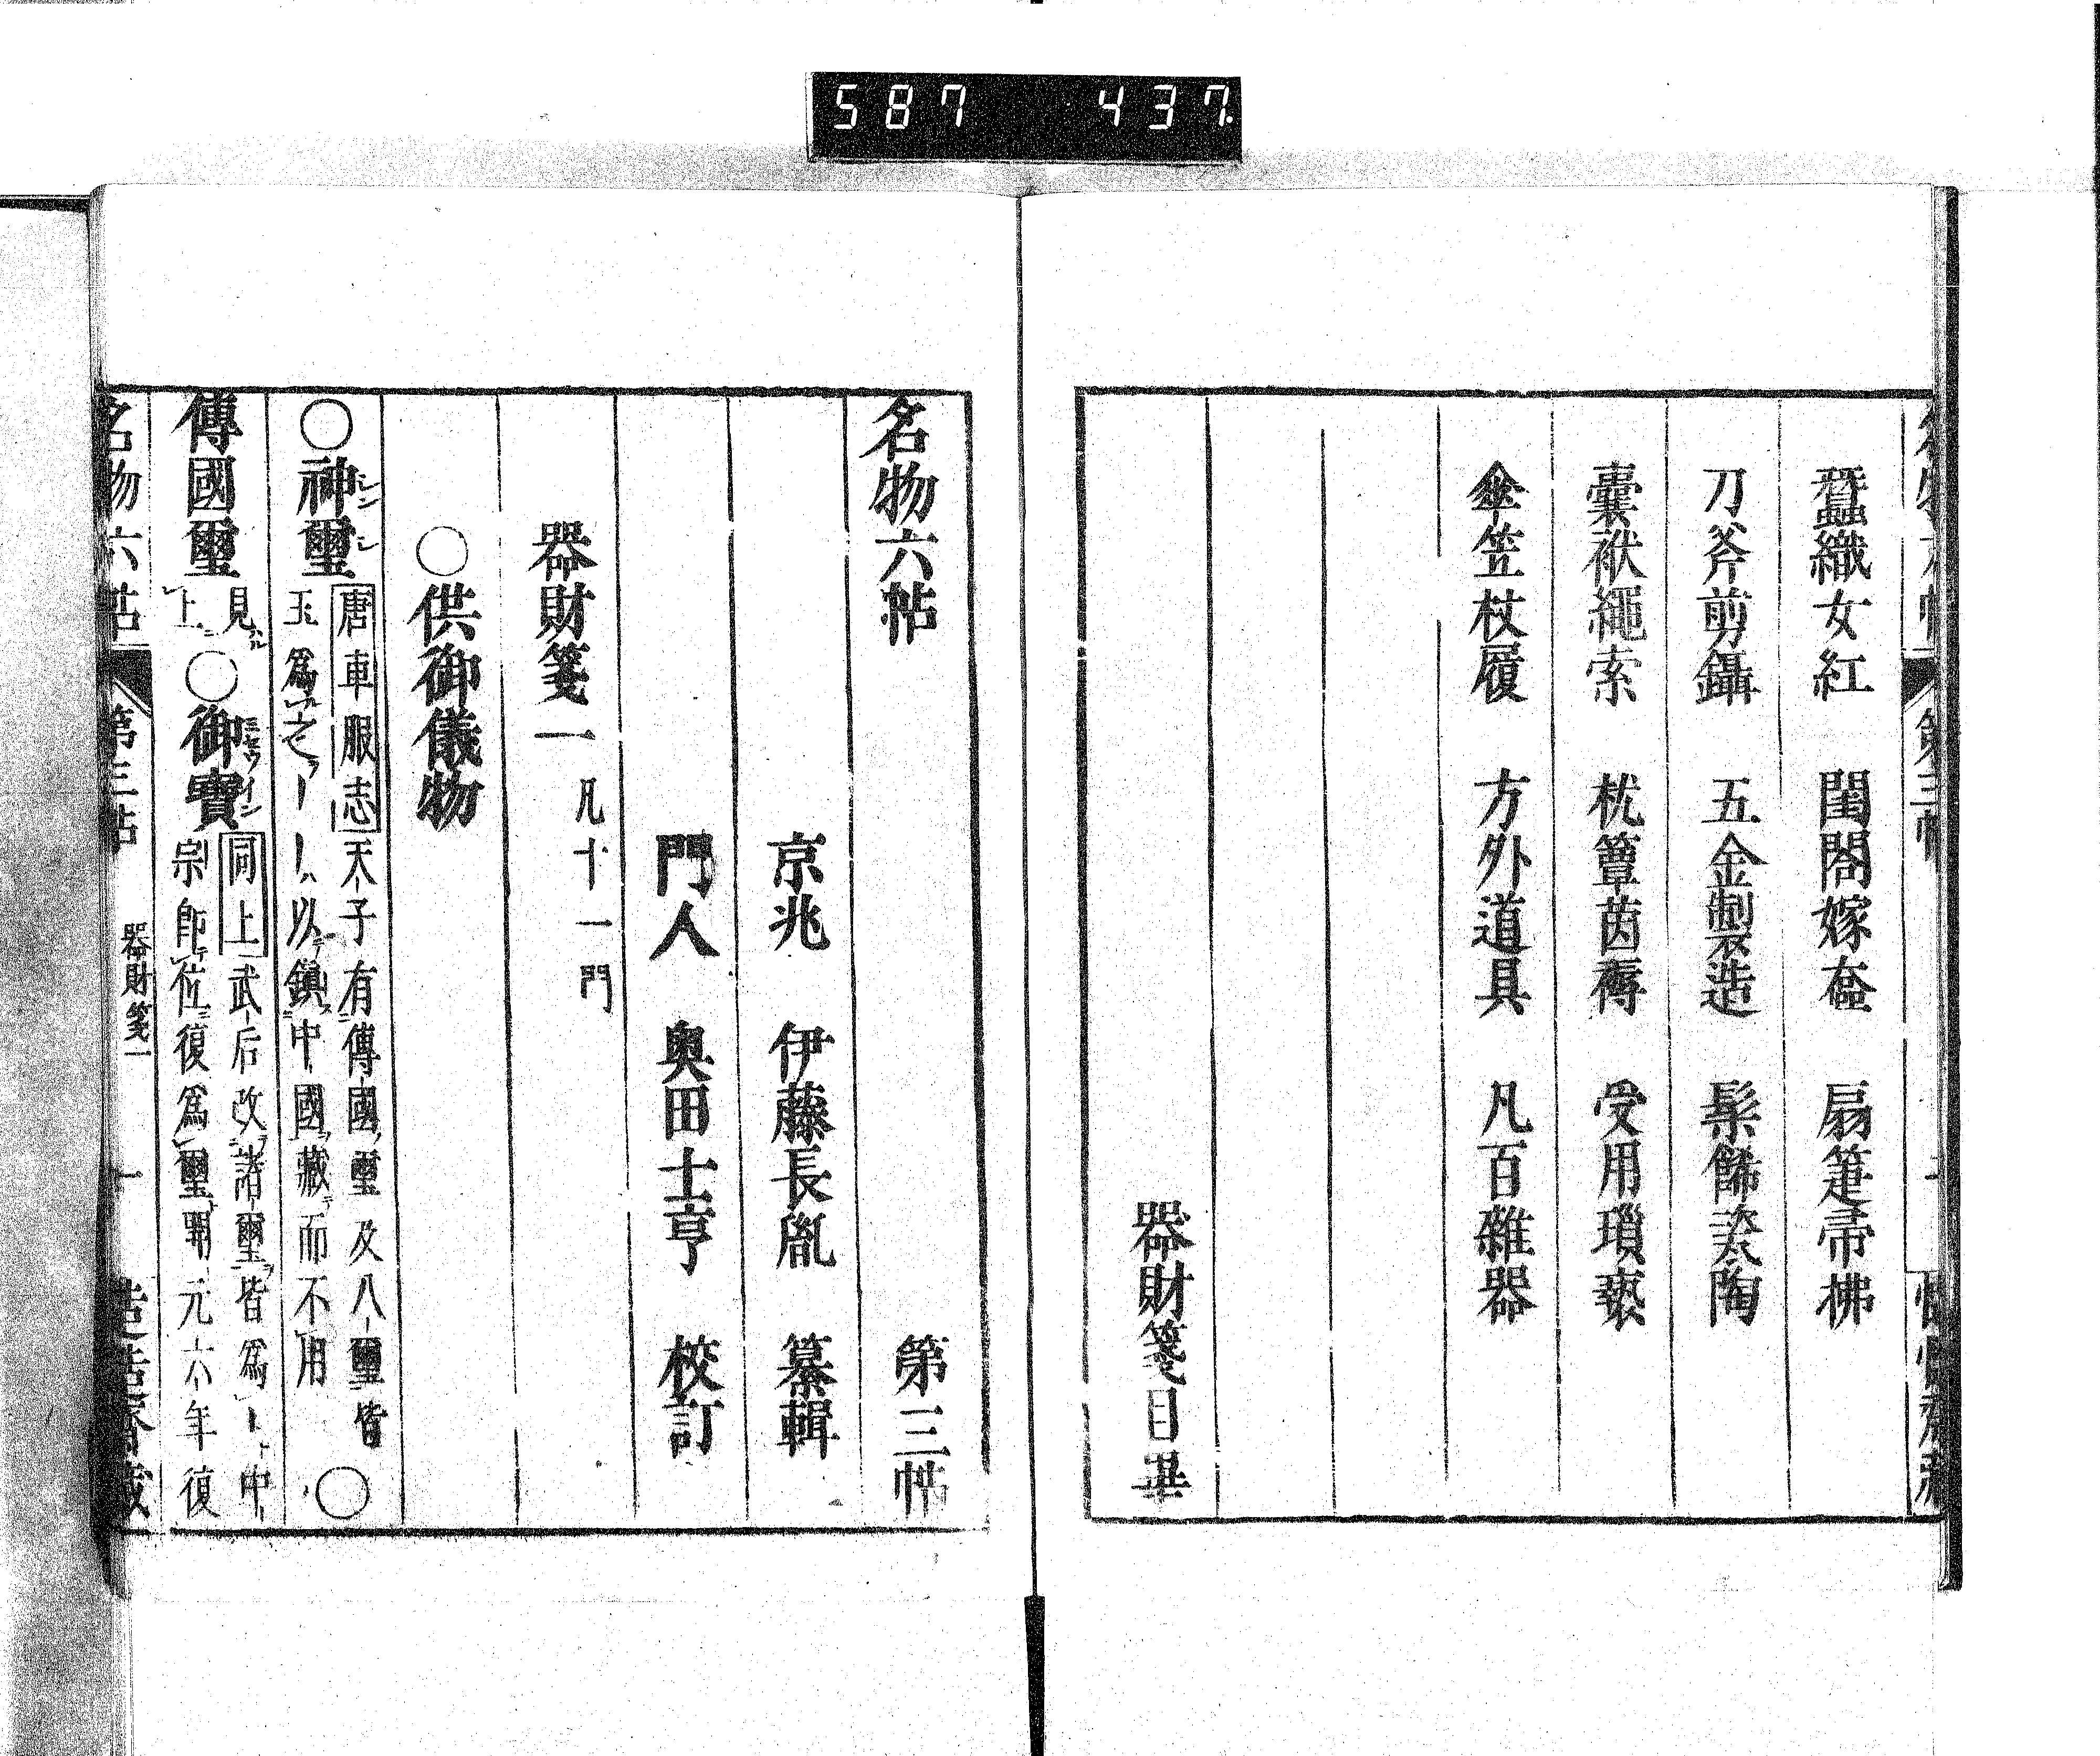 587 437
蠶織女紅 閨閤嫁奩 扇箑帚拂
刀斧剪鑷 五金製造 髹餙𣾰陶
囊袱繩索 枕簟茵褥 受用瑣褻
傘笠杖履 方外道具 凡百雜器
器財箋目畢
名物六帖 第三帖
京兆 伊藤長胤 纂輯
門人 奧田士亨 校訂
器財箋一 凡十一門
○供御儀物
○神璽 シンシ 唐車服志 天子有傳國璽及八璽皆
玉爲之ーー以鎮中國藏而不用 ○
傳國璽 見上 ○御寶 ミセウイン 同上 武后改諸璽皆爲ー中
宗即位復爲璽開元六年復
名物六帖 第三帖 器財箋一 一